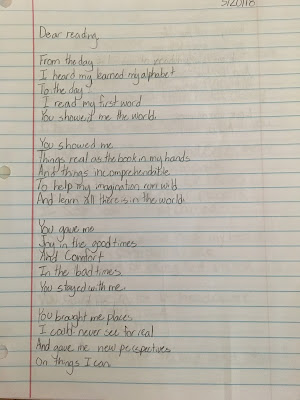 5/20/18
Dear reading,
From the day
I heard my learned my alphabet
To the day
I read my first word
You showed me the world.
You showed me
Things real as the book in my hands
And things incomprehendable
To help my imagination run wild
And learn all there is in the world.
You gave me
Joy in the good times
And Comfort
In the bad times
You stayed with me.
You brought me places
I could never see for real
And gave me new perspectives
On things I can